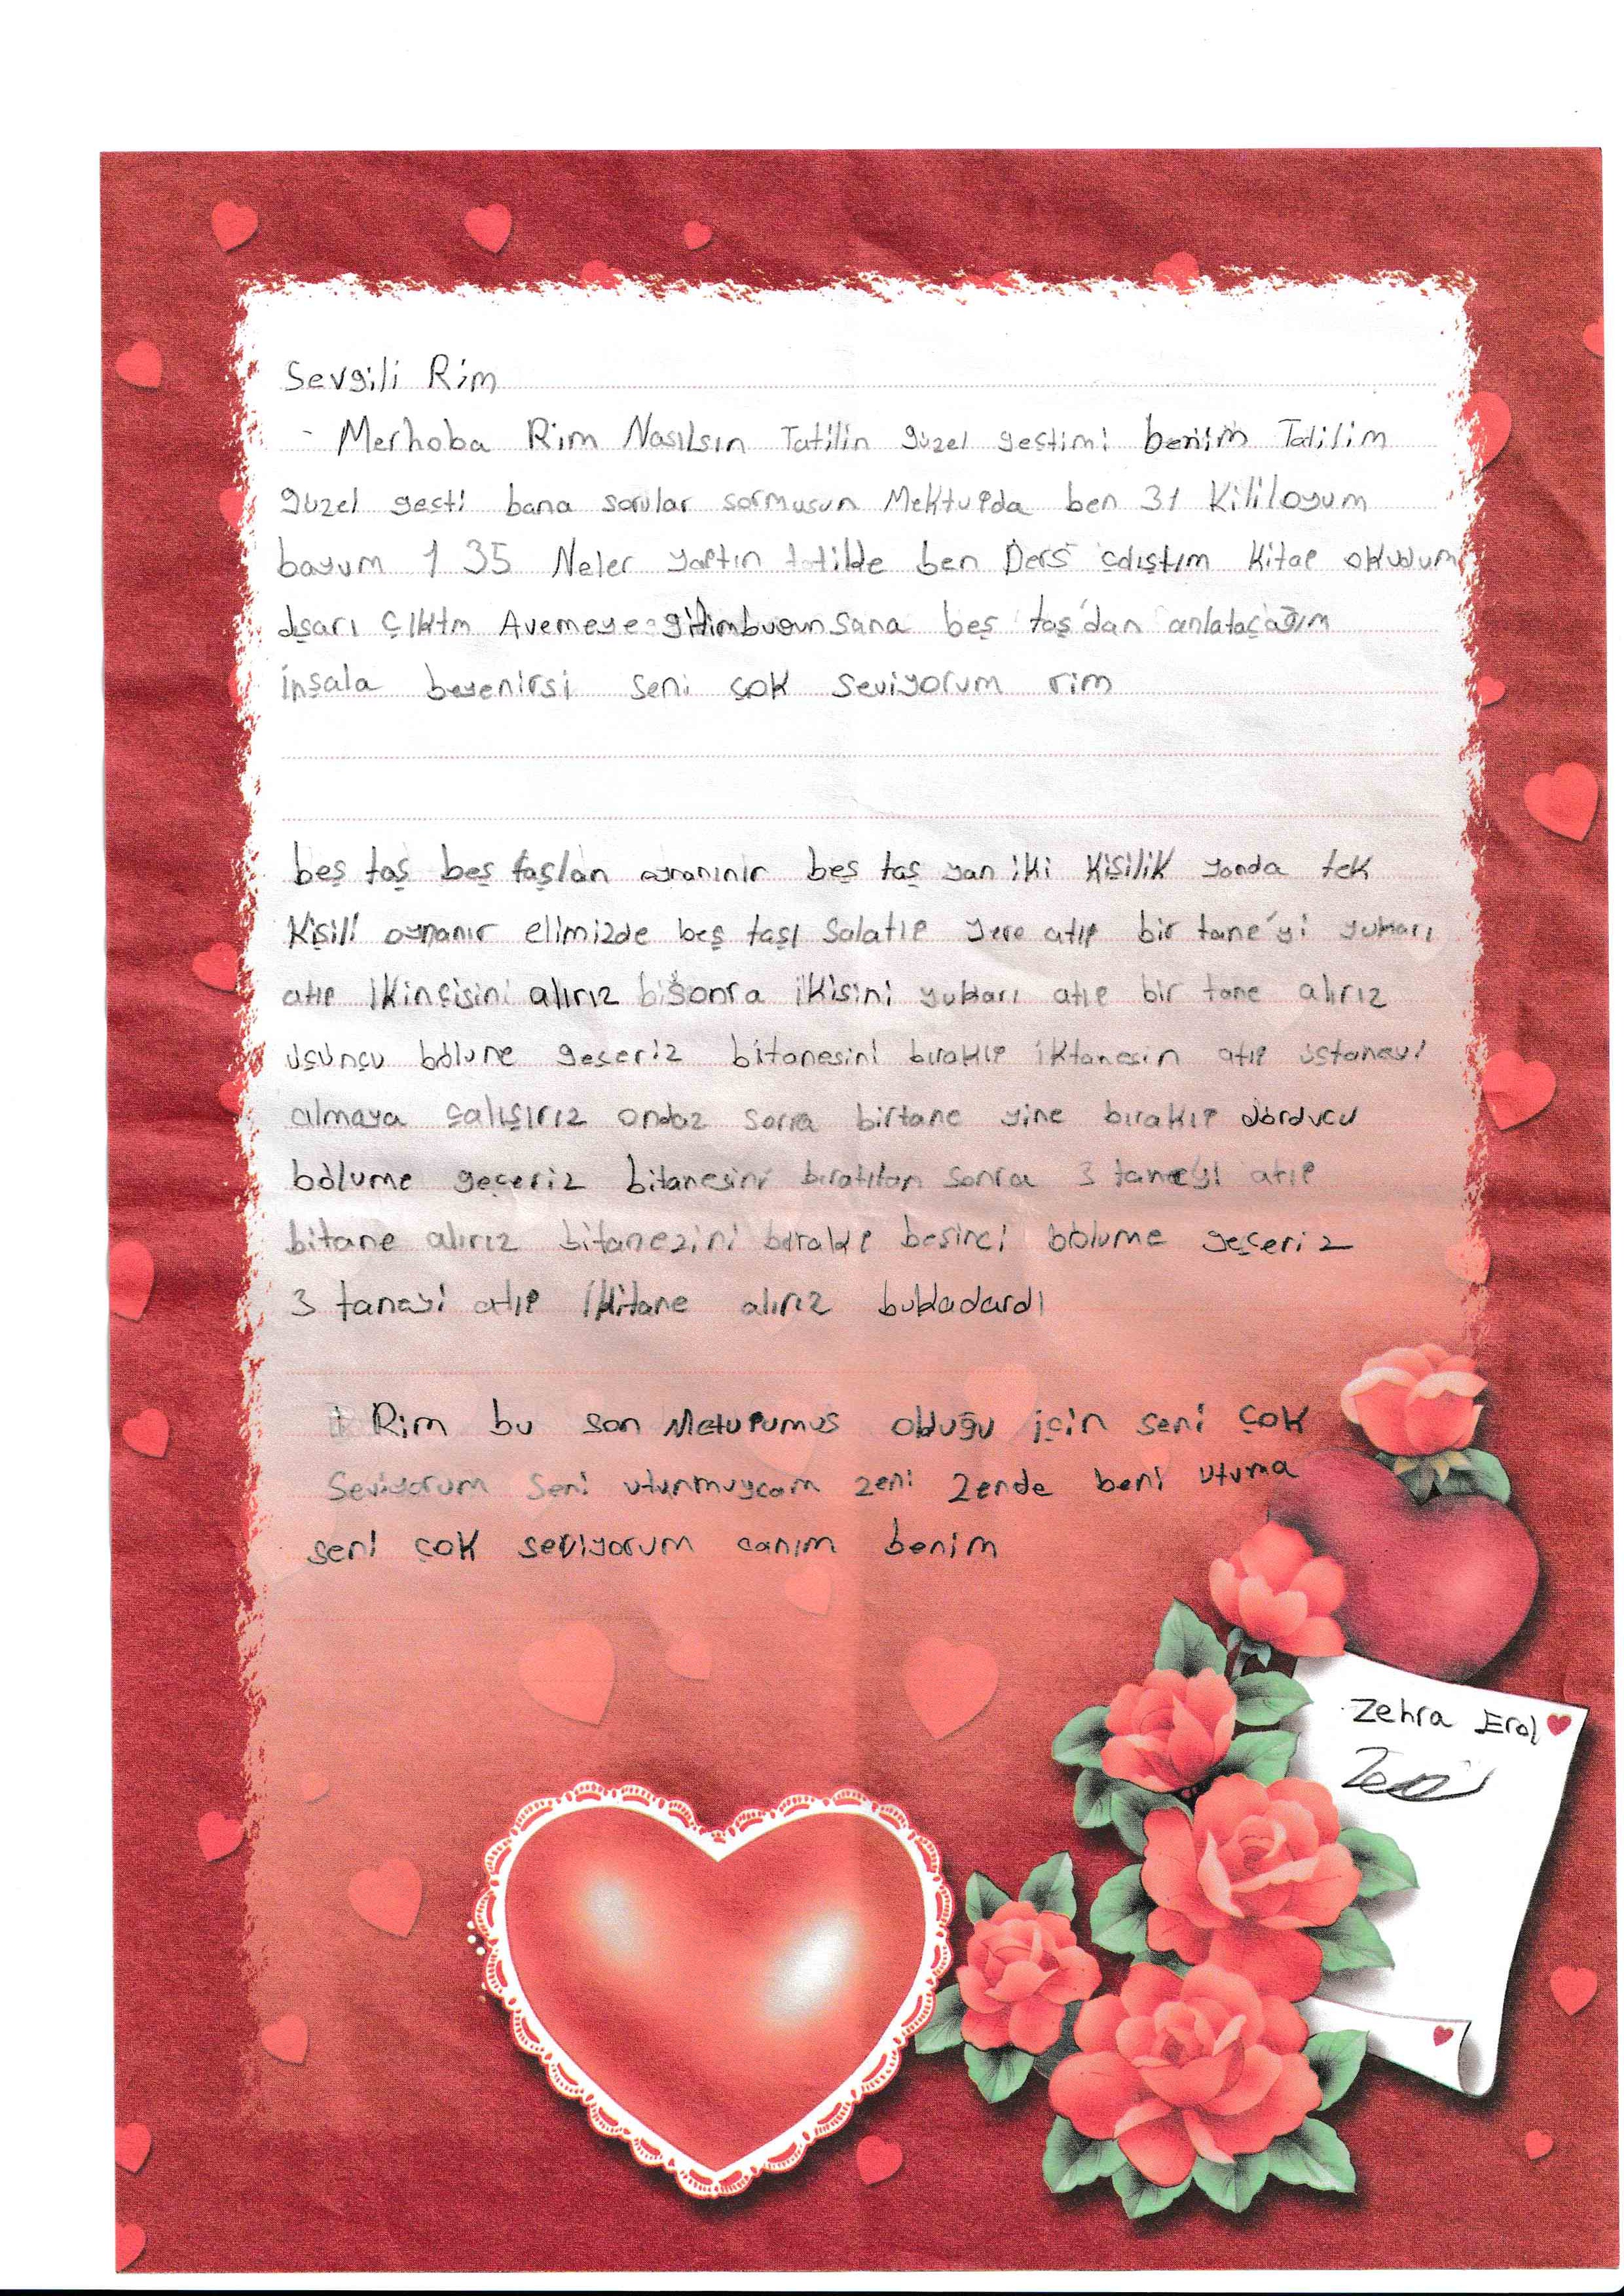 Sevgili Rim
- Merhoba Rim Nasılsın Tatilin güzel gestimi benim Tatilim
güzel geçti bana sorular sormuşun Mektupda ben 31 Kililoyum
boyum 1 35 Neler yaptın tatilde ben Ders çalıştım Kitap okudum
dışarı çıktm Avemeye gittim bugun sana beş taş'dan anlataçağım
inşala beyenirsi seni çok seviyorum rim
beş taş beş taşlan oynanınır beş taş yan iki kişilik yanda tek
kişili oynanır elimizde beş taşı salatıp yere atıp bir tane'yi yukarı
atıp ikinçisini alırız bi sonra ikisini yukarı atıp bir tane alırız
üçünçü bölüne geçeriz bitanesini bırakıp iktanesin atıp üstaneyi
almaya çalışırız ondaz sonra birtane yine bırakıp dörducu
bölume geçeriz bitanesini sonra 3 taneyi atıp
bitane alırız bitanezini bırakıp beşinci bölume geçeriz
3 taneyi atıp ikitane alırız bukadardı
Rim bu son Metupumus olduğu için seni çok
Seviyorum seni utunmuycam zeni Zende beni utuma
seni çok seviyorum canım benim
Zehra Erol